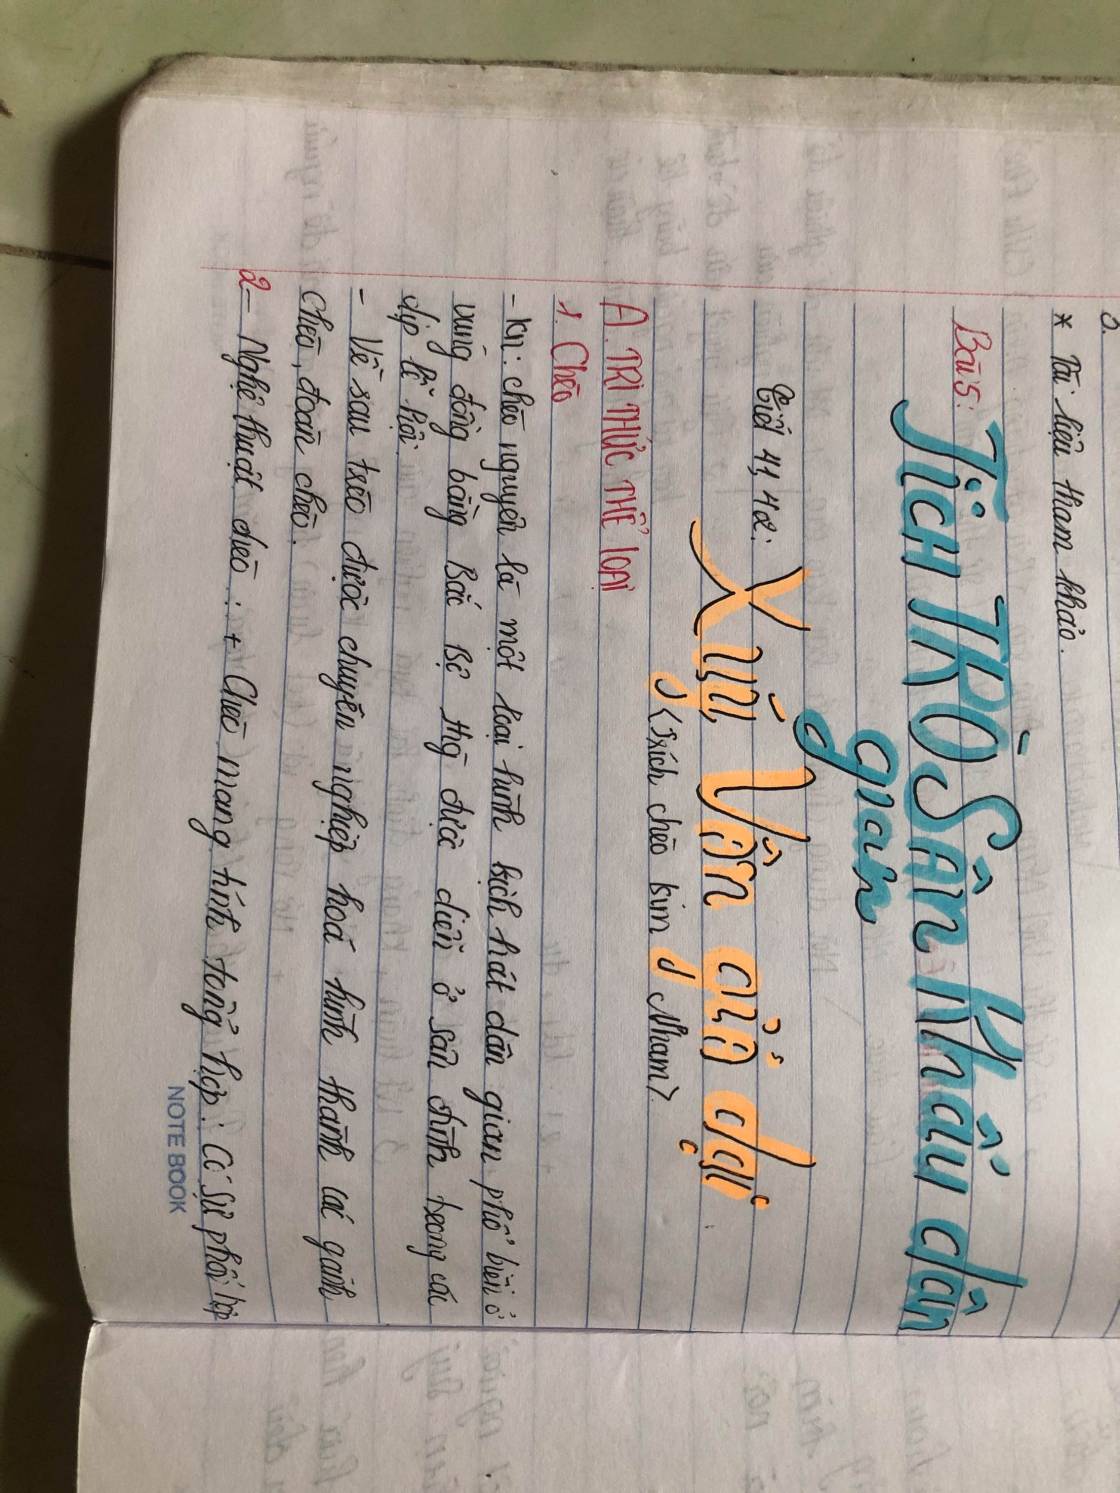 * Tài liệu tham khảo.
Bài 5:
TỊCH TRÒ SÂN KHẤU dân
gian
Tiết 41, 42:
Xuý Vân giả dại
(trích chèo Kim Nham).
A. TRI THỨC THỂ LOẠI
1. Chèo
- Kn: chèo nguyên là một loại hình kịch hát dân gian phổ biến ở
vùng đồng bằng Bắc Bộ thg được diễn ở sân đình trong các
dịp lễ hội.
- Về sau trèo được chuyên nghiệp hoá hình thành các gánh
chèo, đoàn chèo.
2 - Nghệ thuật chèo : + Chèo mang tính tổng hợp: Có sự phối hợp
NOTE BOOK